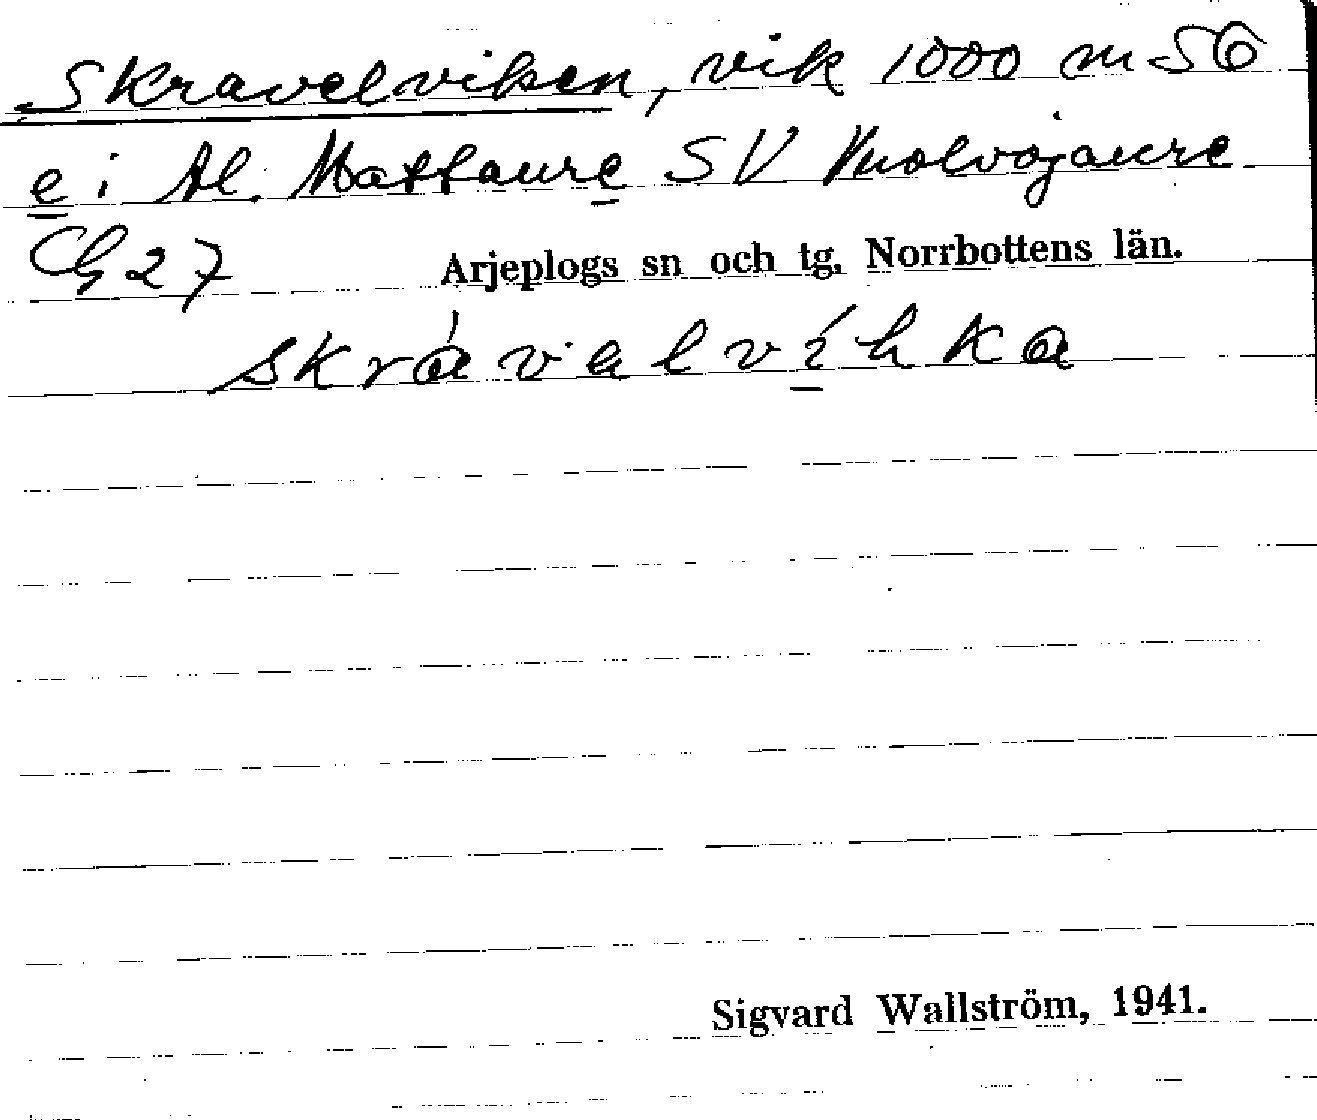 Skravelviken, vik 1000 m SO
e i Al. Mattaure SV Vuolvojaure
Cg 27 Arjeplogs sn och tg, Norrbottens län.
skrávalvíhka
Sigvard Wallström, 1941.